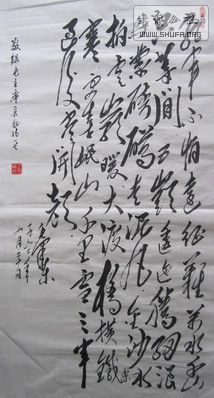 WWW.SHUFA.ORG
紅軍不怕遠征難萬水千
山只等閒五嶺逶迤騰細浪
烏蒙磅礴走泥丸金沙水
拍雲崖暖大渡橋橫鐵索
寒更喜岷山千里雪三軍
過後盡開顏
毛澤東
一九六二年
月廿日
毛主席長征詩